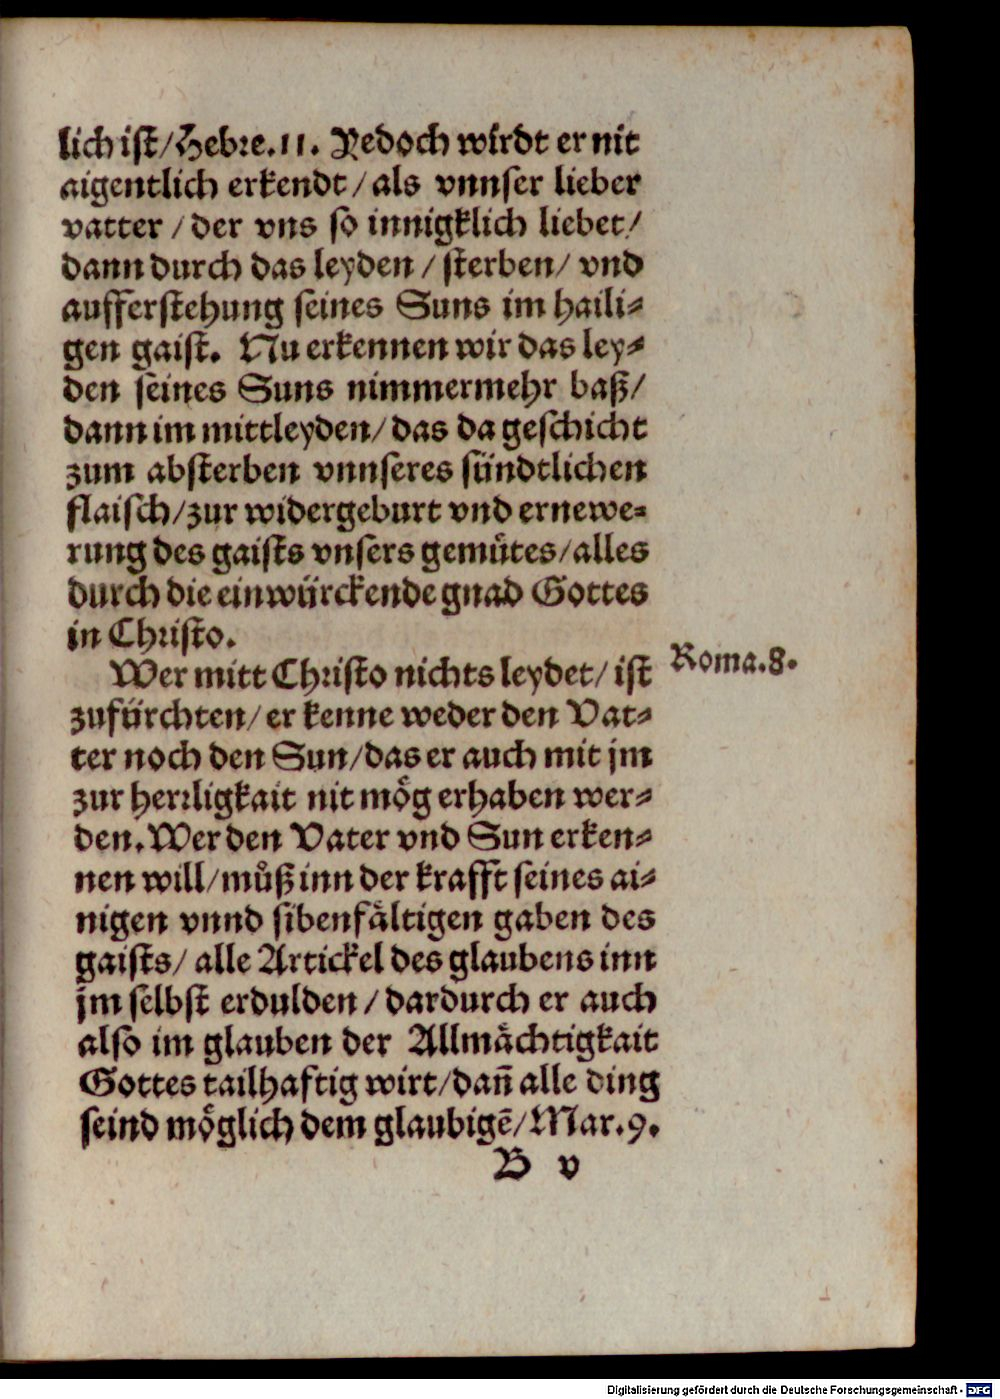 lich ist/Hebre.11. Yedoch wirdt er nit
aigentlich erkendt/als vnnser lieber
vatter/der vns so innigklich liebet/
dann durch das leyden/sterben/vnd
aufferstehung seines Suns im haili⸗
gen gaist. Nu erkennen wir das ley⸗
den seines Suns nimmermehr baß/
dann im mittleyden/das da geschicht
zum absterben vnnseres sündtlichen
flaisch/zur widergeburt vnd ernewe⸗
rung des gaists vnsers gemuͤtes/alles
durch die einwürckende gnad Gottes
in Christo.
Wer mitt Christo nichts leydet/ist
Roma.8.
zufürchten/er kenne weder den Vat⸗
ter noch den Sun/das er auch mit jm
zur herrligkait nit moͤg erhaben wer⸗
den.Wer den Vater vnd Sun erken⸗
nen will/muͦß inn der krafft seines ai⸗
nigen vnnd sibenfaͤltigen gaben des
gaists/alle Artickel des glaubens inn
jm selbst erdulden/dardurch er auch
also im glauben der Allmaͤchtigkait
Gottes tailhafftig wirt/dañ alle ding
seind moͤglich dem glaubigē/Mar.9.
B v
Digitalisierung gefördert durch die Deutsche Forschungsgemeinschaft - DFG